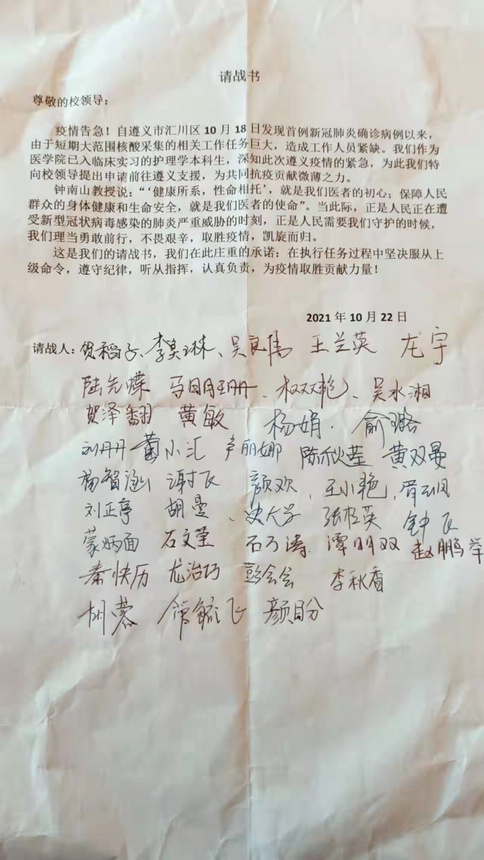 请战书
尊敬的校领导：
疫情告急！自遵义市汇川区 10 月 18 日发现首例新冠肺炎确诊病例以来，
由于短期大范围核酸采集的相关工作任务巨大，造成工作人员紧缺。我们作为
医学院已入临床实习的护理学本科生，深知此次遵义疫情的紧急，为此我们特
向校领导提出申请前往遵义支援，为共同抗疫贡献微薄之力。
钟南山教授说：“‘健康所系，性命相托’，就是我们医者的初心；保障人民
群众的身体健康和生命安全，就是我们医者的使命”。当此际，正是人民正在遭
受新型冠状病毒感染的肺炎严重威胁的时刻，正是人民需要我们守护的时候，
我们理当勇敢前行，不畏艰辛，取胜疫情，凯旋而归。
这是我们的请战书，我们在此庄重的承诺：在执行任务过程中坚决服从上
级命令，遵守纪律，听从指挥，认真负责，为疫情取胜贡献力量！
2021 年 10 月 22 日
请战人：贺稻子、李昊琳、吴良伟 王兰英 龙宇
陆先蝶 马明珊、权双艳、吴水湘
贺泽翻 黄敏 杨娟. 俞璐
刘丹丹 黄小汇 卢丽娜 陈秋莹 黄双曼
杨智涵 谢才飞 颜欢、王小艳
刘正亨 胡曼、 张极英 钟飞
蒙炳面 石文莹 石乃涛. 谭明双 赵鹏举
秦快历 龙治巧 彭会会 李秋香
胡蓉 颜日分